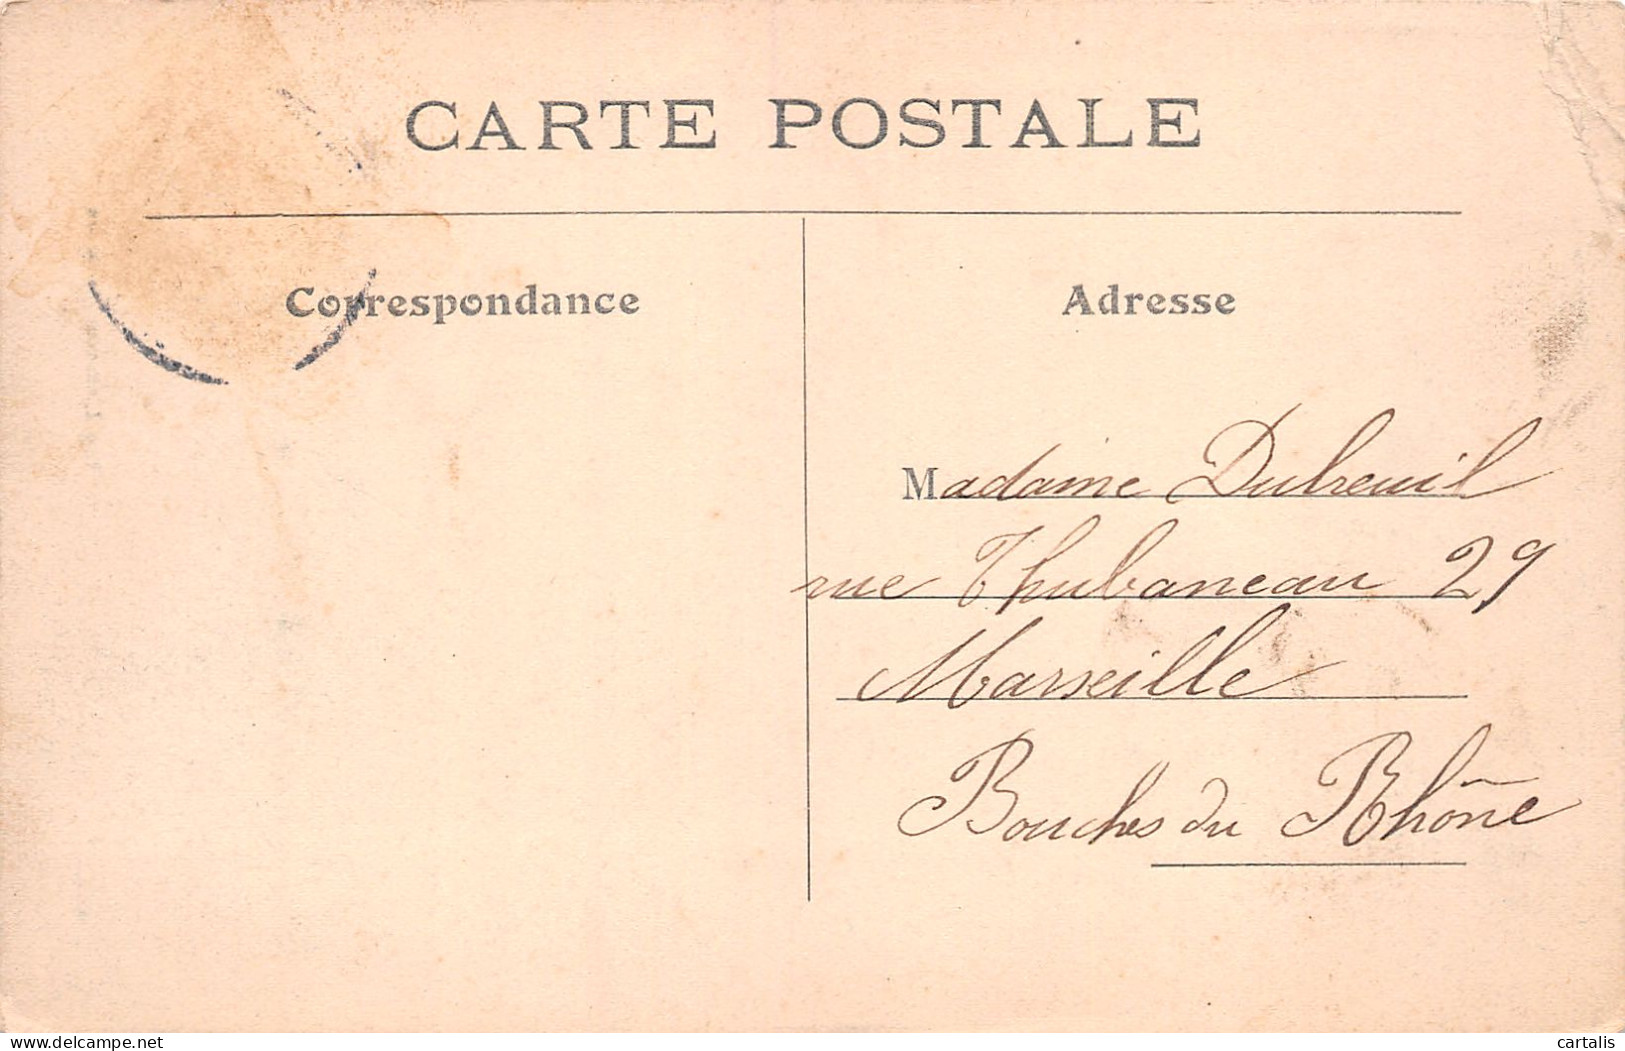 CARTE POSTALE
Correspondance
Adresse
Madame Dubreuil
rue Thubaneau 29
Marseille
Bouches du Rhône
www.delcampe.net
cartalis